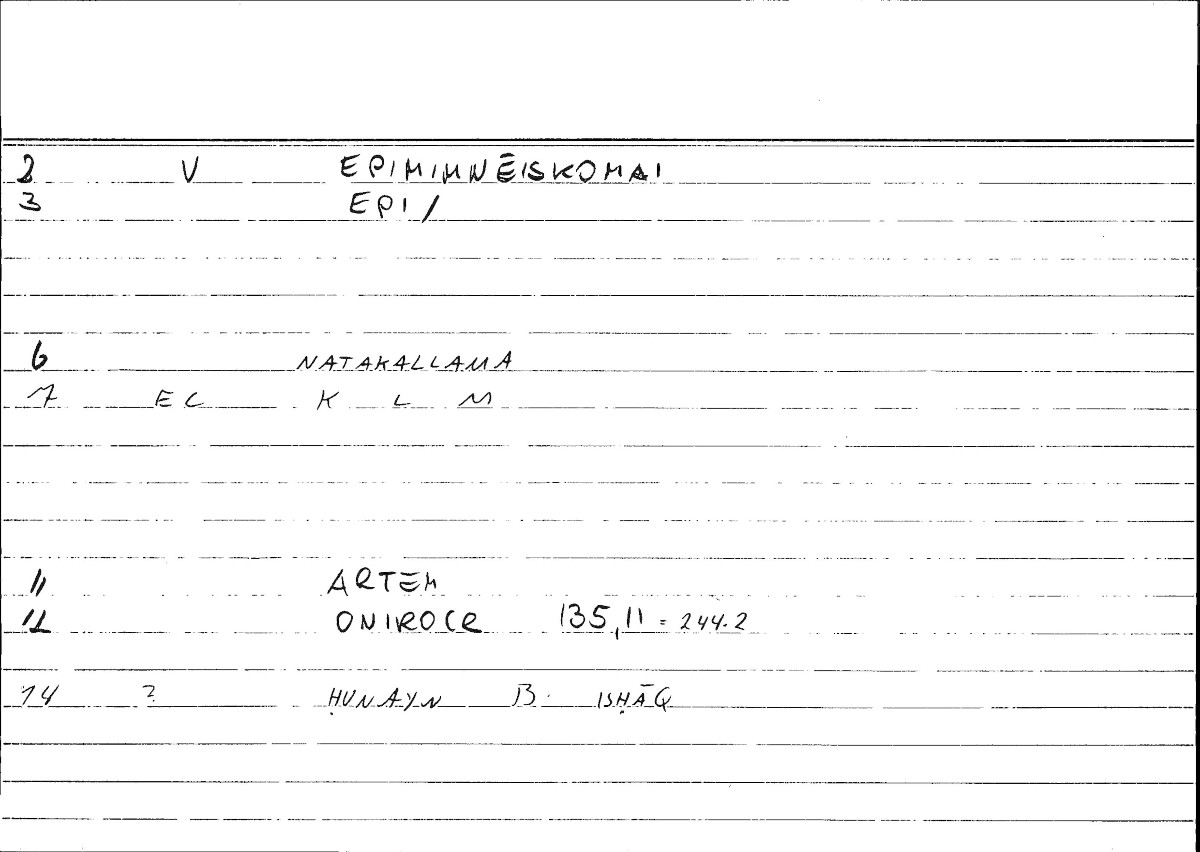 2 V EPIMIMNĒISKOMAI
3 EPI/
6 NATAKALLAMA
7 EC K L M
11 ARTEM
12 ONIROCR 135,11 = 244.2
14 ? ḤUNAYN B. ISḤĀQ